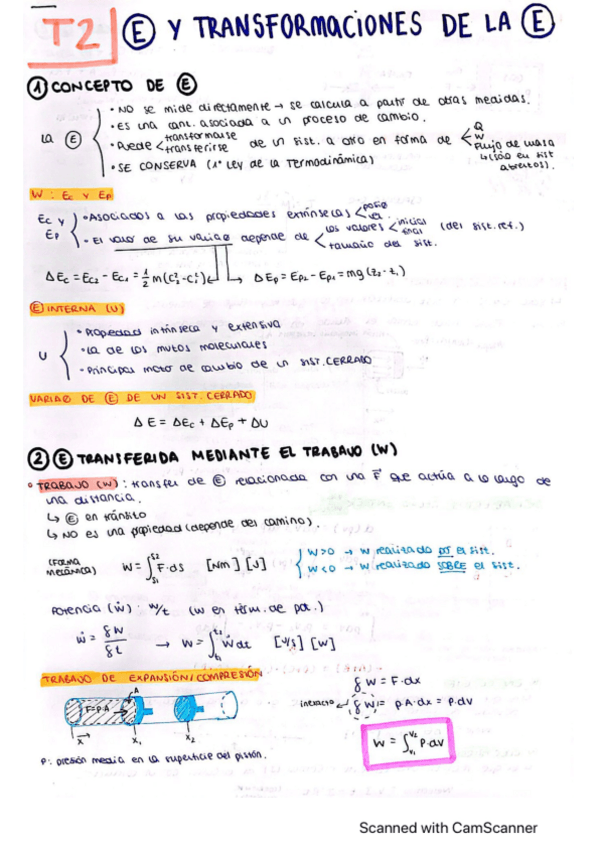 T2 Ⓔ Y TRANSFORMACIONES DE LA Ⓔ
① CONCEPTO DE Ⓔ
· NO se mide directamente → se calcula a partir de otras medidas.
· Es una cant. asociada a un proceso de cambio.
LA Ⓔ · Puede < transformarse / transferirse de un sist. a otro en forma de < Q / W / Flujo de masa
↳ (solo en sist abiertos).
· SE CONSERVA (1ª Ley de la Termodinámica)
W : Ec y Ep
Ec y Ep · Asociados a las propiedades extrínsecas < posic / vel.
· El valor de su variac depende de < los valores < inicial / final (del sist. ref.) / tamaño del sist.
ΔEc = Ec2 - Ec1 = 1/2 m(C₂² - C₁²) ΔEp = Ep2 - Ep1 = mg(z₂ - z₁)
Ⓔ INTERNA (U)
· Propiedad intrínseca y extensiva
U · La de los mvtos moleculares
· Principal motor de cambio de un SIST. CERRADO
VARIAC DE Ⓔ DE UN SIST. CERRADO
ΔE = ΔEc + ΔEp + ΔU
② Ⓔ TRANSFERIDA MEDIANTE EL TRABAJO (W)
· TRABAJO (W) : transfer de Ⓔ relacionada con una F⃗ que actúa a lo largo de
una distancia.
↳ Ⓔ en tránsito
↳ NO es una propiedad (depende del camino).
(FORMA MECÁNICA) W = ∫_{S1}^{S2} F·ds [Nm] [J]
W>0 → W realizado POR el sist.
W<0 → W realizado SOBRE el sist.
Potencia (Ẇ) : W/t (W en térm. de pot.)
Ẇ = δW/δt → W = ∫_{t1}^{t2} Ẇ dt [J/s] [W]
TRABAJO DE EXPANSIÓN / COMPRESIÓN
A
F=P·A
x x₁ x₂
δW = F·dx
inexacto δW = P·A·dx = P·dV
W = ∫_{V1}^{V2} P·dV
P : presión media en la superficie del pistón.
Scanned with CamScanner